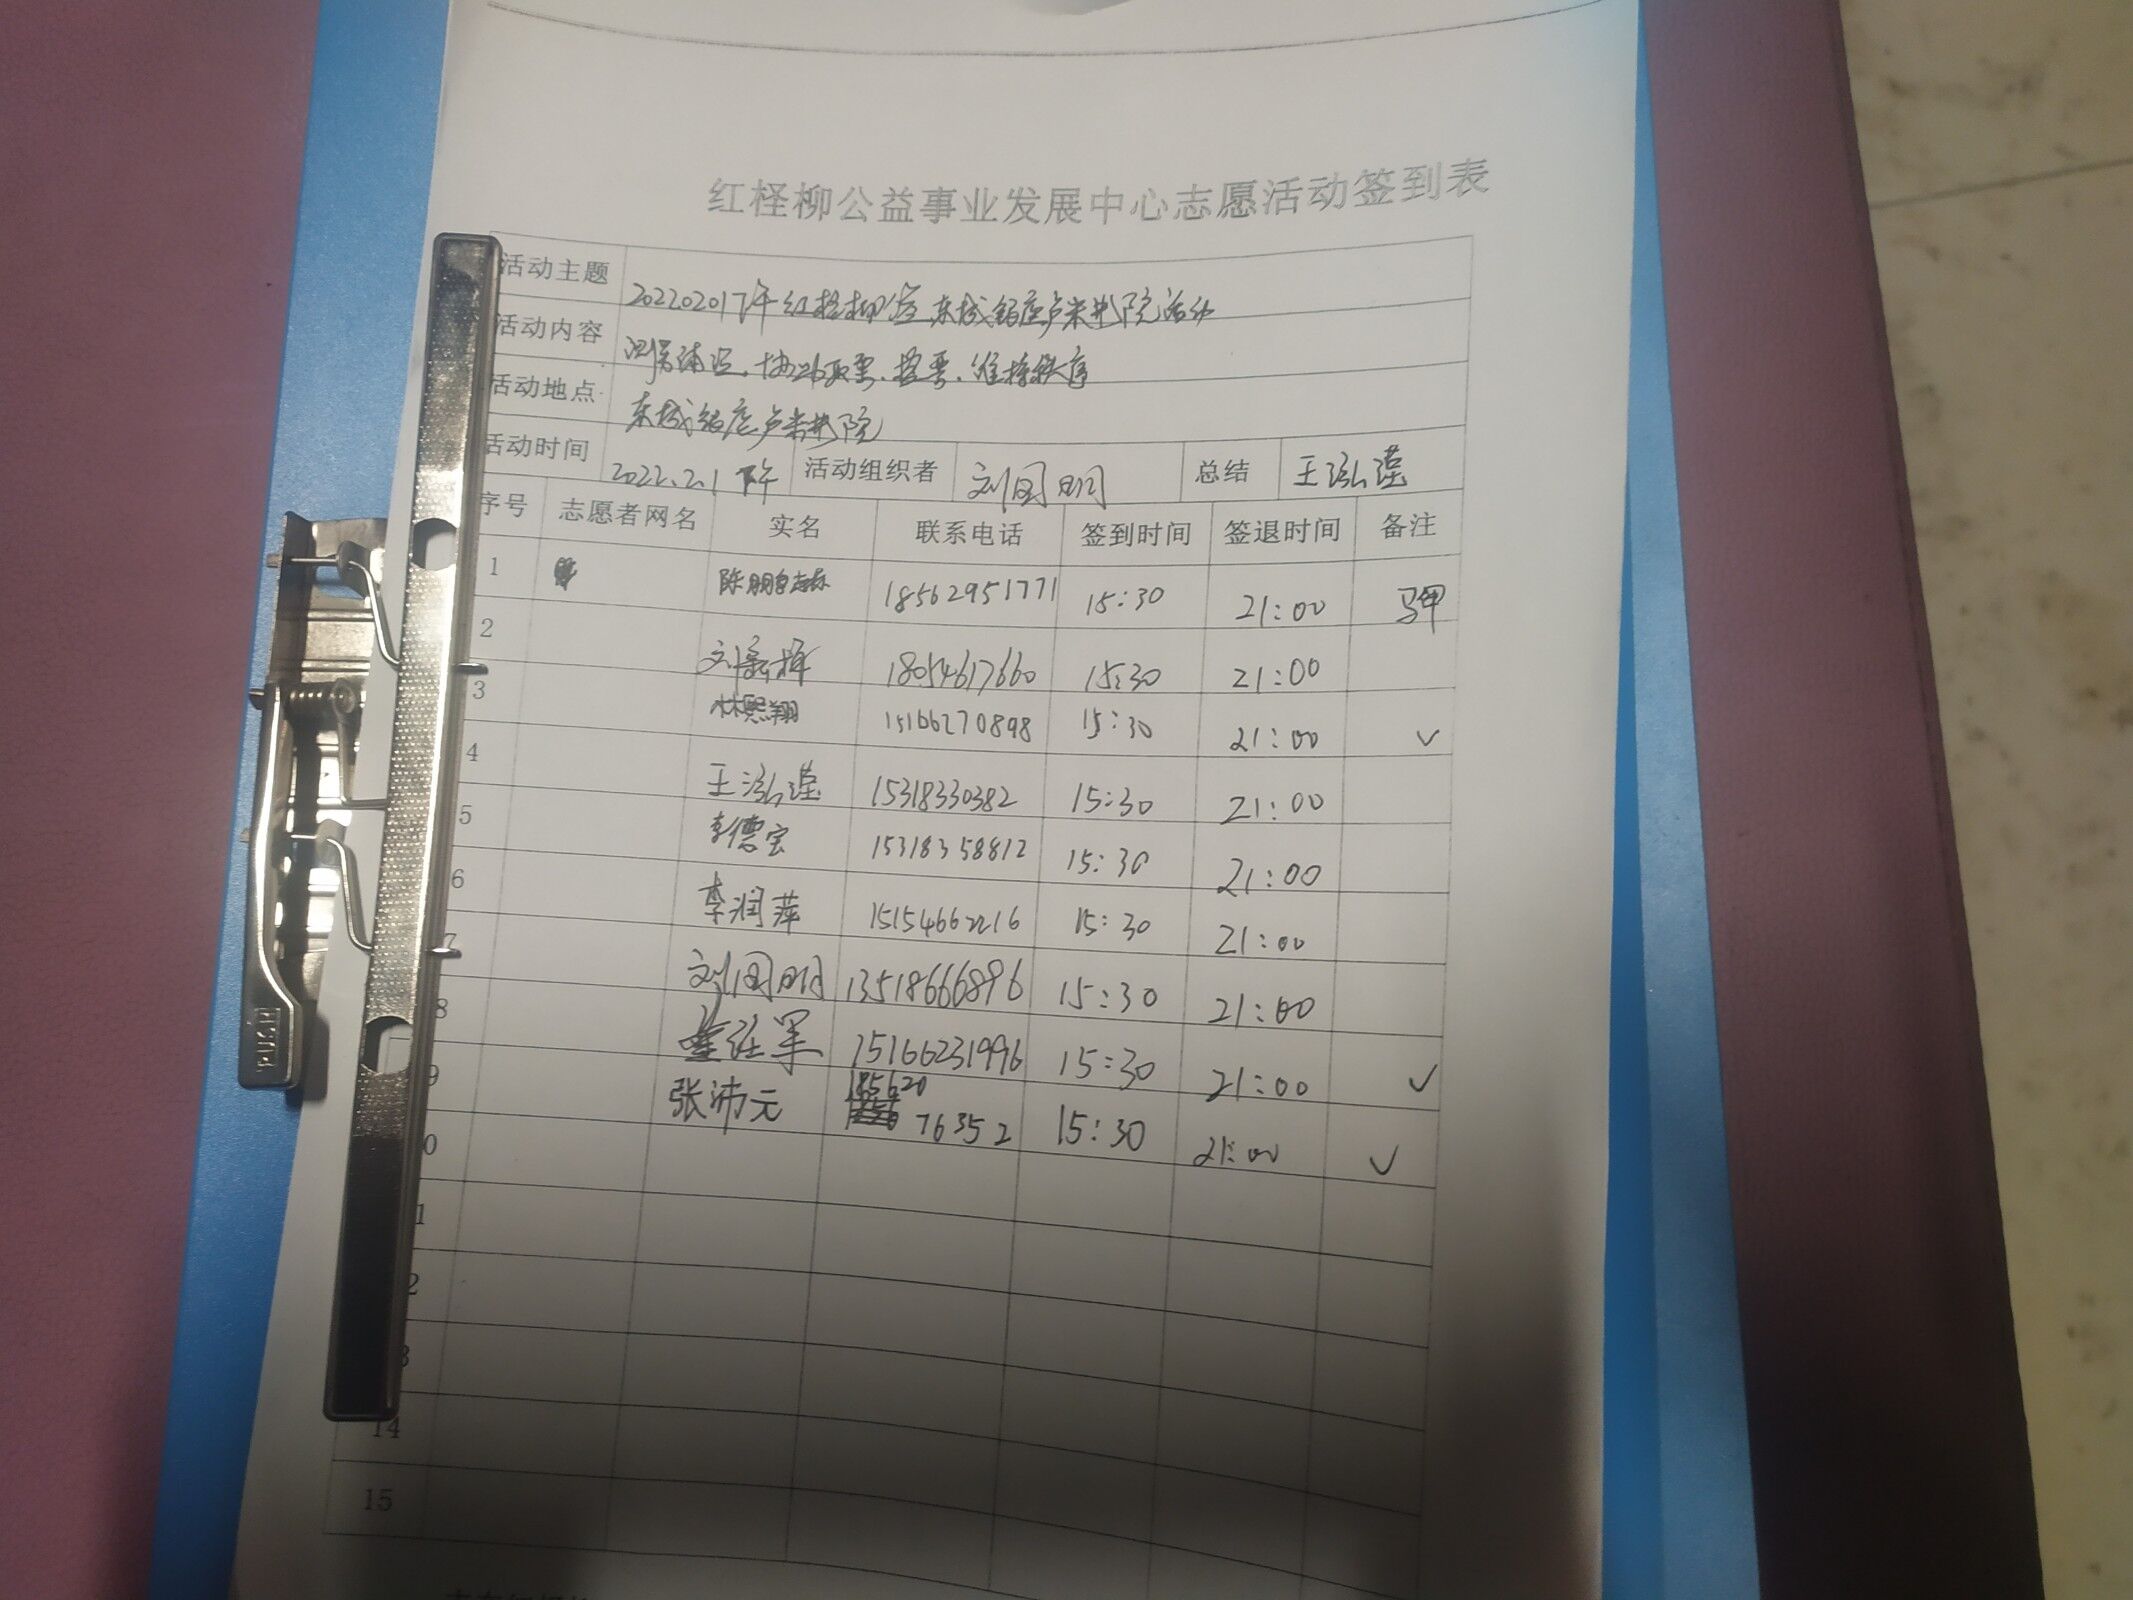 红柽柳公益事业发展中心志愿活动签到表
活动主题 20220201下午红柽柳 东城银座卢米影院活动
活动内容 测温 协助取票、 维持秩序
活动地点 东城银座卢米影院
活动时间 2022.2.1 下午 活动组织者 刘国明 总结 王泓滢
序号 志愿者网名 实名 联系电话 签到时间 签退时间 备注
1 陈 18562951771 15:30 21:00 马甲
2 刘 辉 18054617660 15:30 21:00
3 林熙翔 15166270898 15:30 21:00 ✓
4 王泓滢 15318330382 15:30 21:00
5 李德宝 15318358812 15:30 21:00
6 李润萍 15154662216 15:30 21:00
7 刘国明 13518666896 15:30 21:00
8 军 15166231996 15:30 21:00 ✓
9 张沛元 18562076352 15:30 21:00 ✓
0
1
2
3
14
15